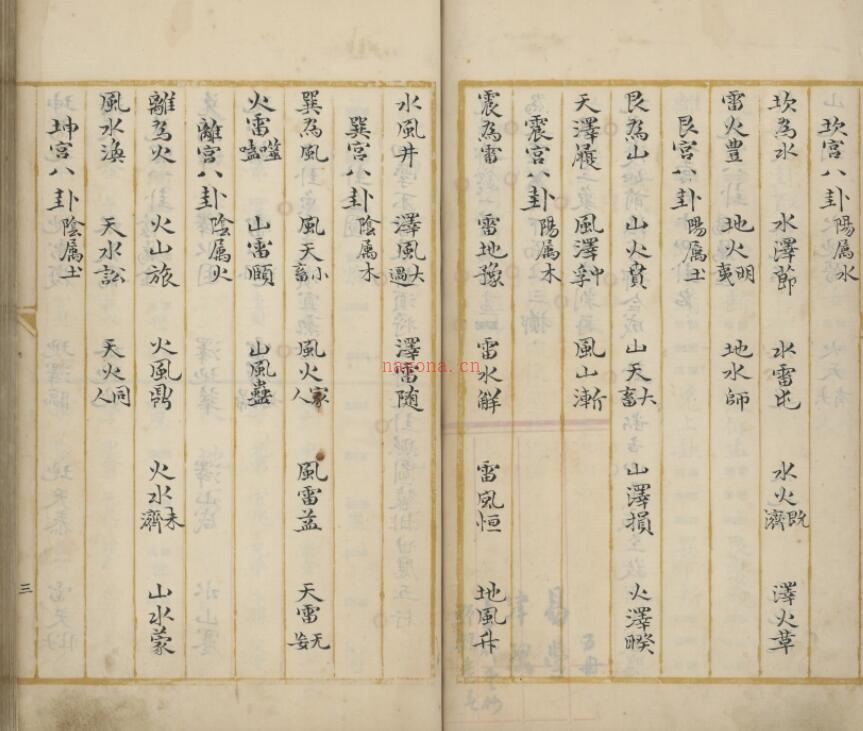 坎宮八卦陽属水
坎為水 水澤節 水雷屯 水火既濟 澤火革
雷火豊 地火明夷 地水師
艮宮八卦陽属土
艮為山 山火賁 山天大畜 山澤損 火澤睽
天澤履 風澤中孚 風山漸
震宮八卦陽属木
震為雷 雷地豫 雷水解 雷風恒 地風升
水風井 澤風大過 澤雷随
巽宮八卦陰属木
巽為風 風天小畜 風火家人 風雷益 天雷无妄
火雷噬嗑 山雷頤 山風蠱
離宮八卦陰属火
離為火 火山旅 火風鼎 火水未濟 山水蒙
風水渙 天水訟 天火同人
坤宮八卦陰属土
三
nayona.cn